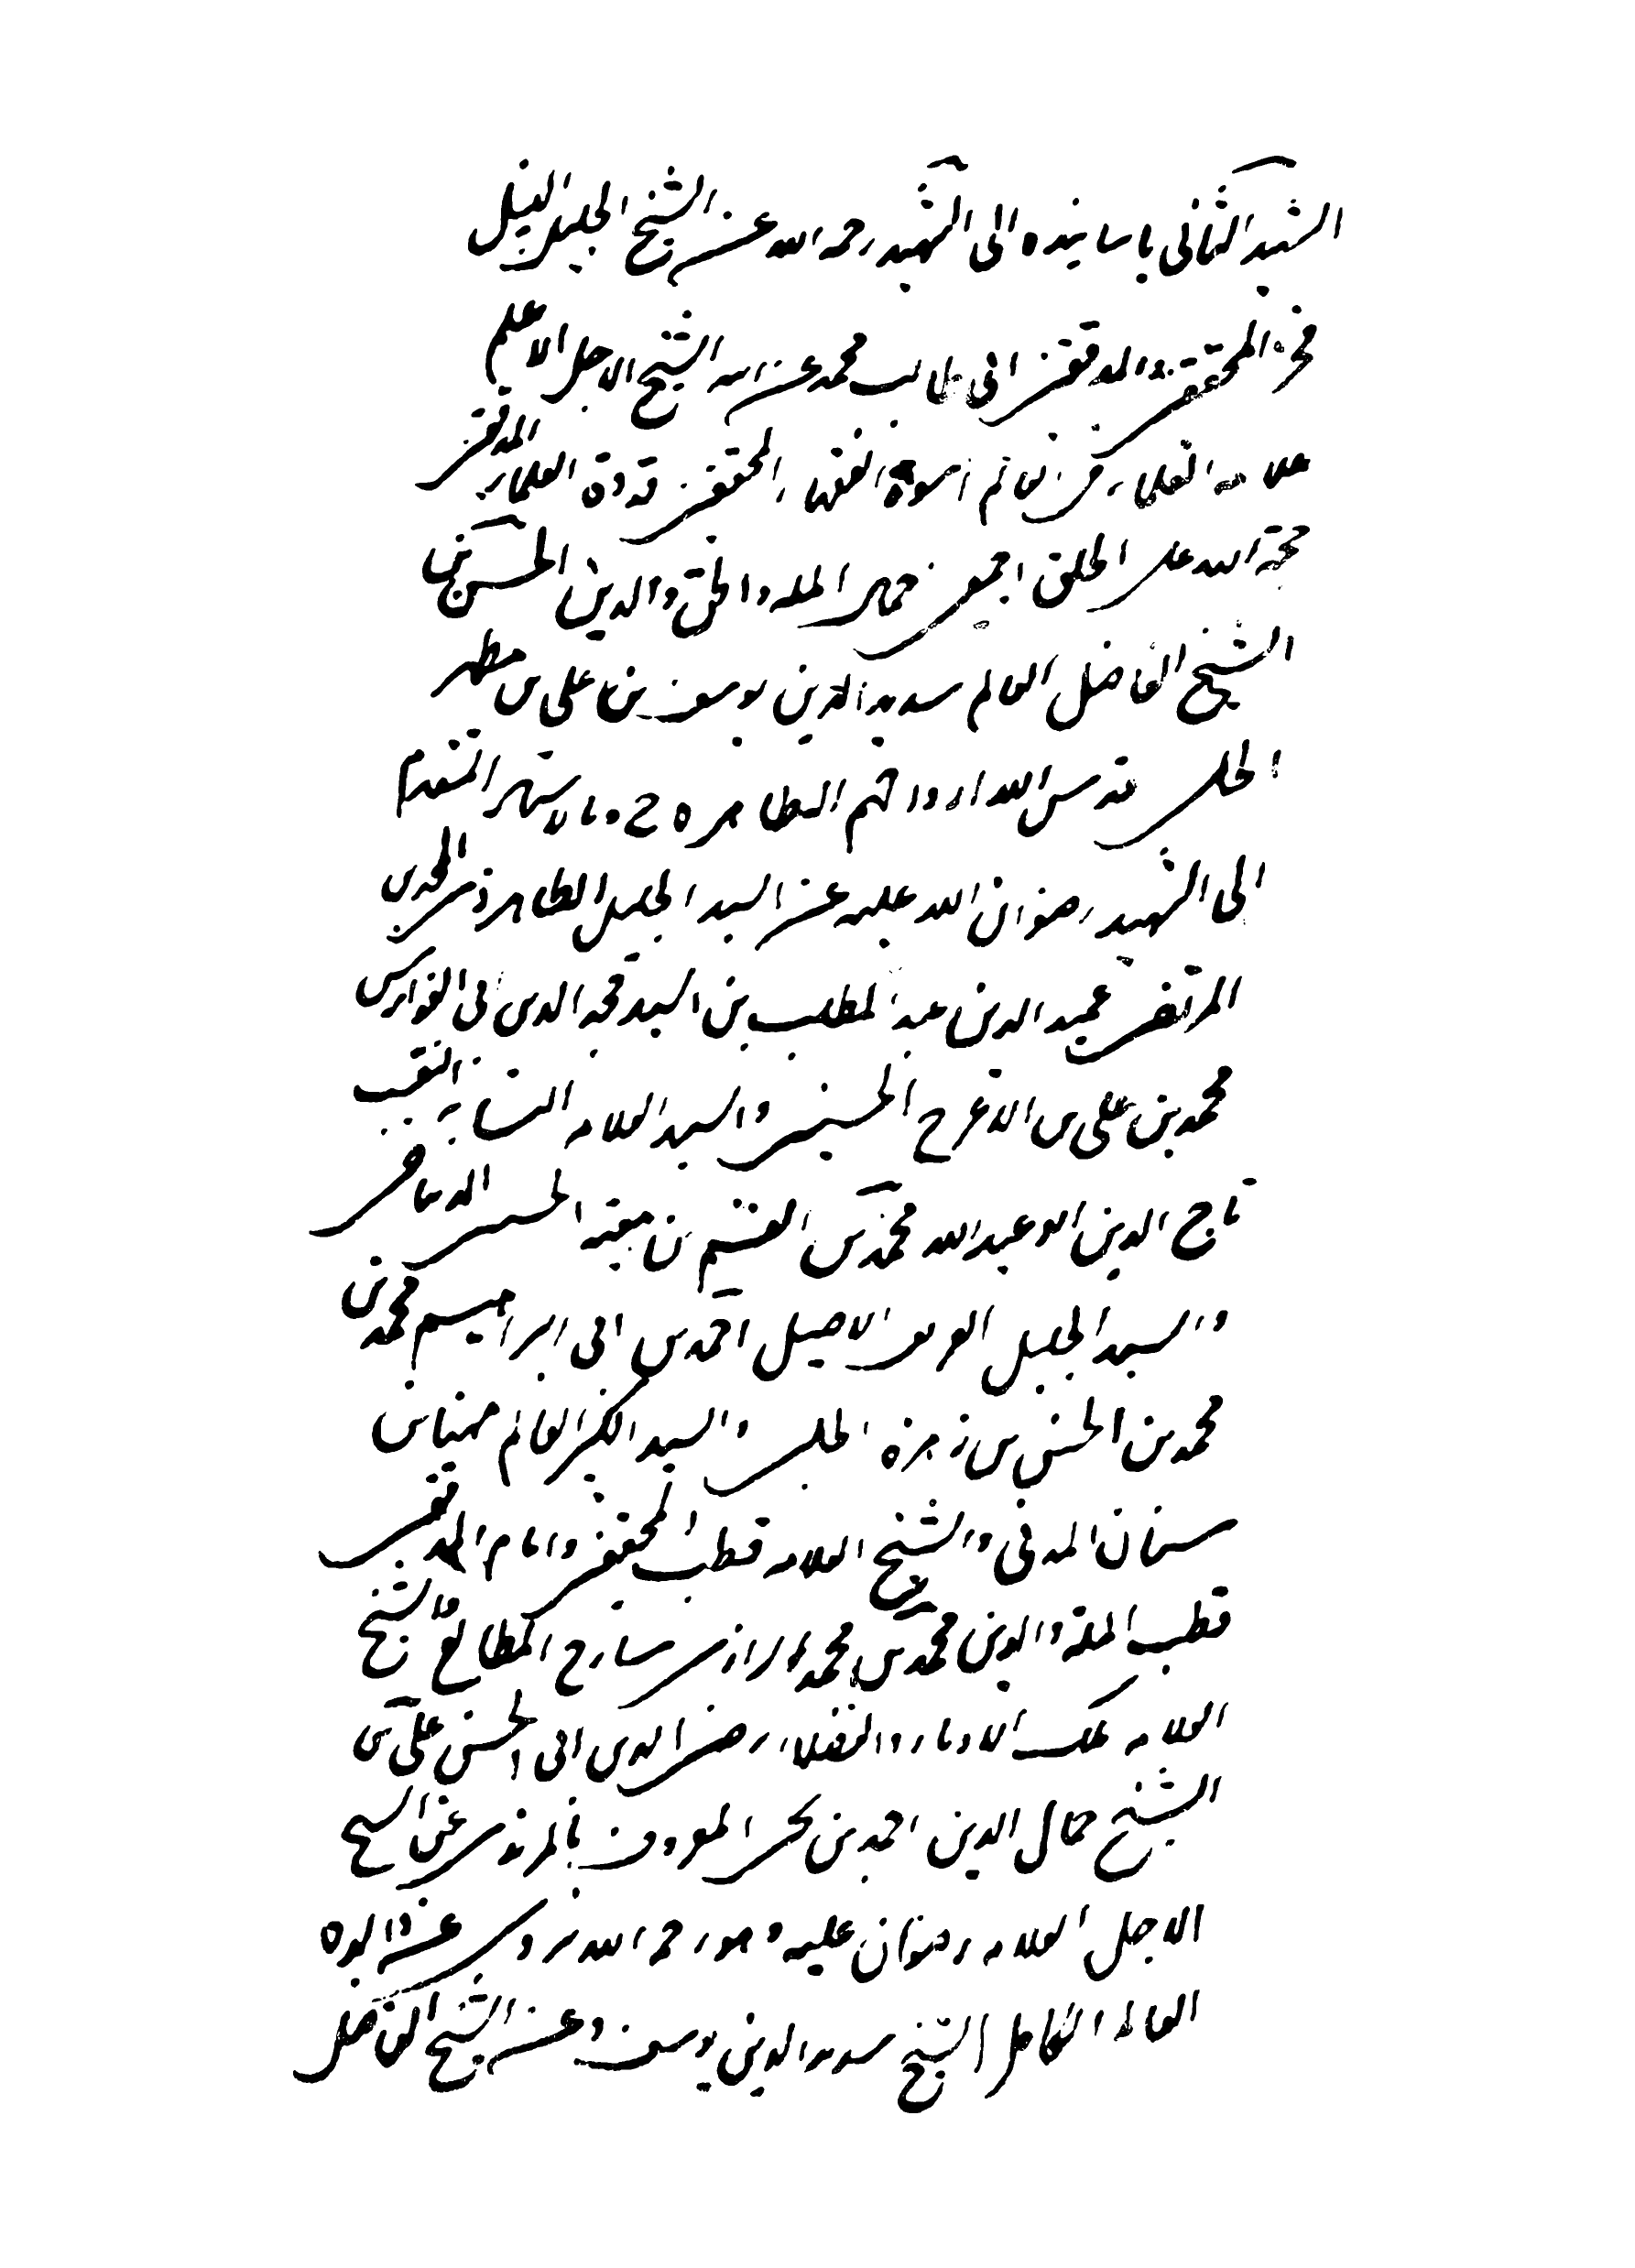 الشهيد الثاني باسانيده الى الشهيد رحمه الله عن الشيخ الجليل النبيل
فخر المحققين والمدققين ابي طالب محمد عن ابيه الشيخ الاجل الاعلم
علامه العلماء في العالم اسوة الفقهاء المحققين قدوة العلماء المدققين
حجة الله على الخلق اجمعين جمال المله والحق والدين الحسن بن
الشيخ الفاضل العالم سديد الدين يوسف بن علي بن مطهر
الحلي قدس الله ارواحهم الطاهره ح وبالاسناد المتقدم
الى الشهيد رضوان الله عليه عن السيد الجليل الطاهر ذي المجدين
المرتضى عميد الدين عبد المطلب بن السيد مجد الدين ابي الفوارس
محمد بن علي بن الاعرج الحسيني والسيد العلامه النسابه النقيب
تاج الدين ابو عبد الله محمد بن القسم بن معيه الحسني الديباجي
والسيد الجليل العريق الاصيل احمد بن ابي ابراهيم محمد بن
محمد بن الحسن بن زهره الحلبي والسيد الكبير العالم مهنا بن
سنان المدني والشيخ العلامه قطب المحققين وامام المدققين
قطب الملة والدين محمد بن محمد الرازي شارح المطالع والشيخ
العلامه ملك الادباء والفضلاء رضي الدين ابي الحسن علي بن
الشيخ جمال الدين احمد بن يحيى المعروف بالمزيدي عن الشيخ
الاجل العلامه رضوان عليه وهو رحمه الله يروي عن والده
العالم الكامل الشيخ سديد الدين يوسف وعن الشيخ الفاضل